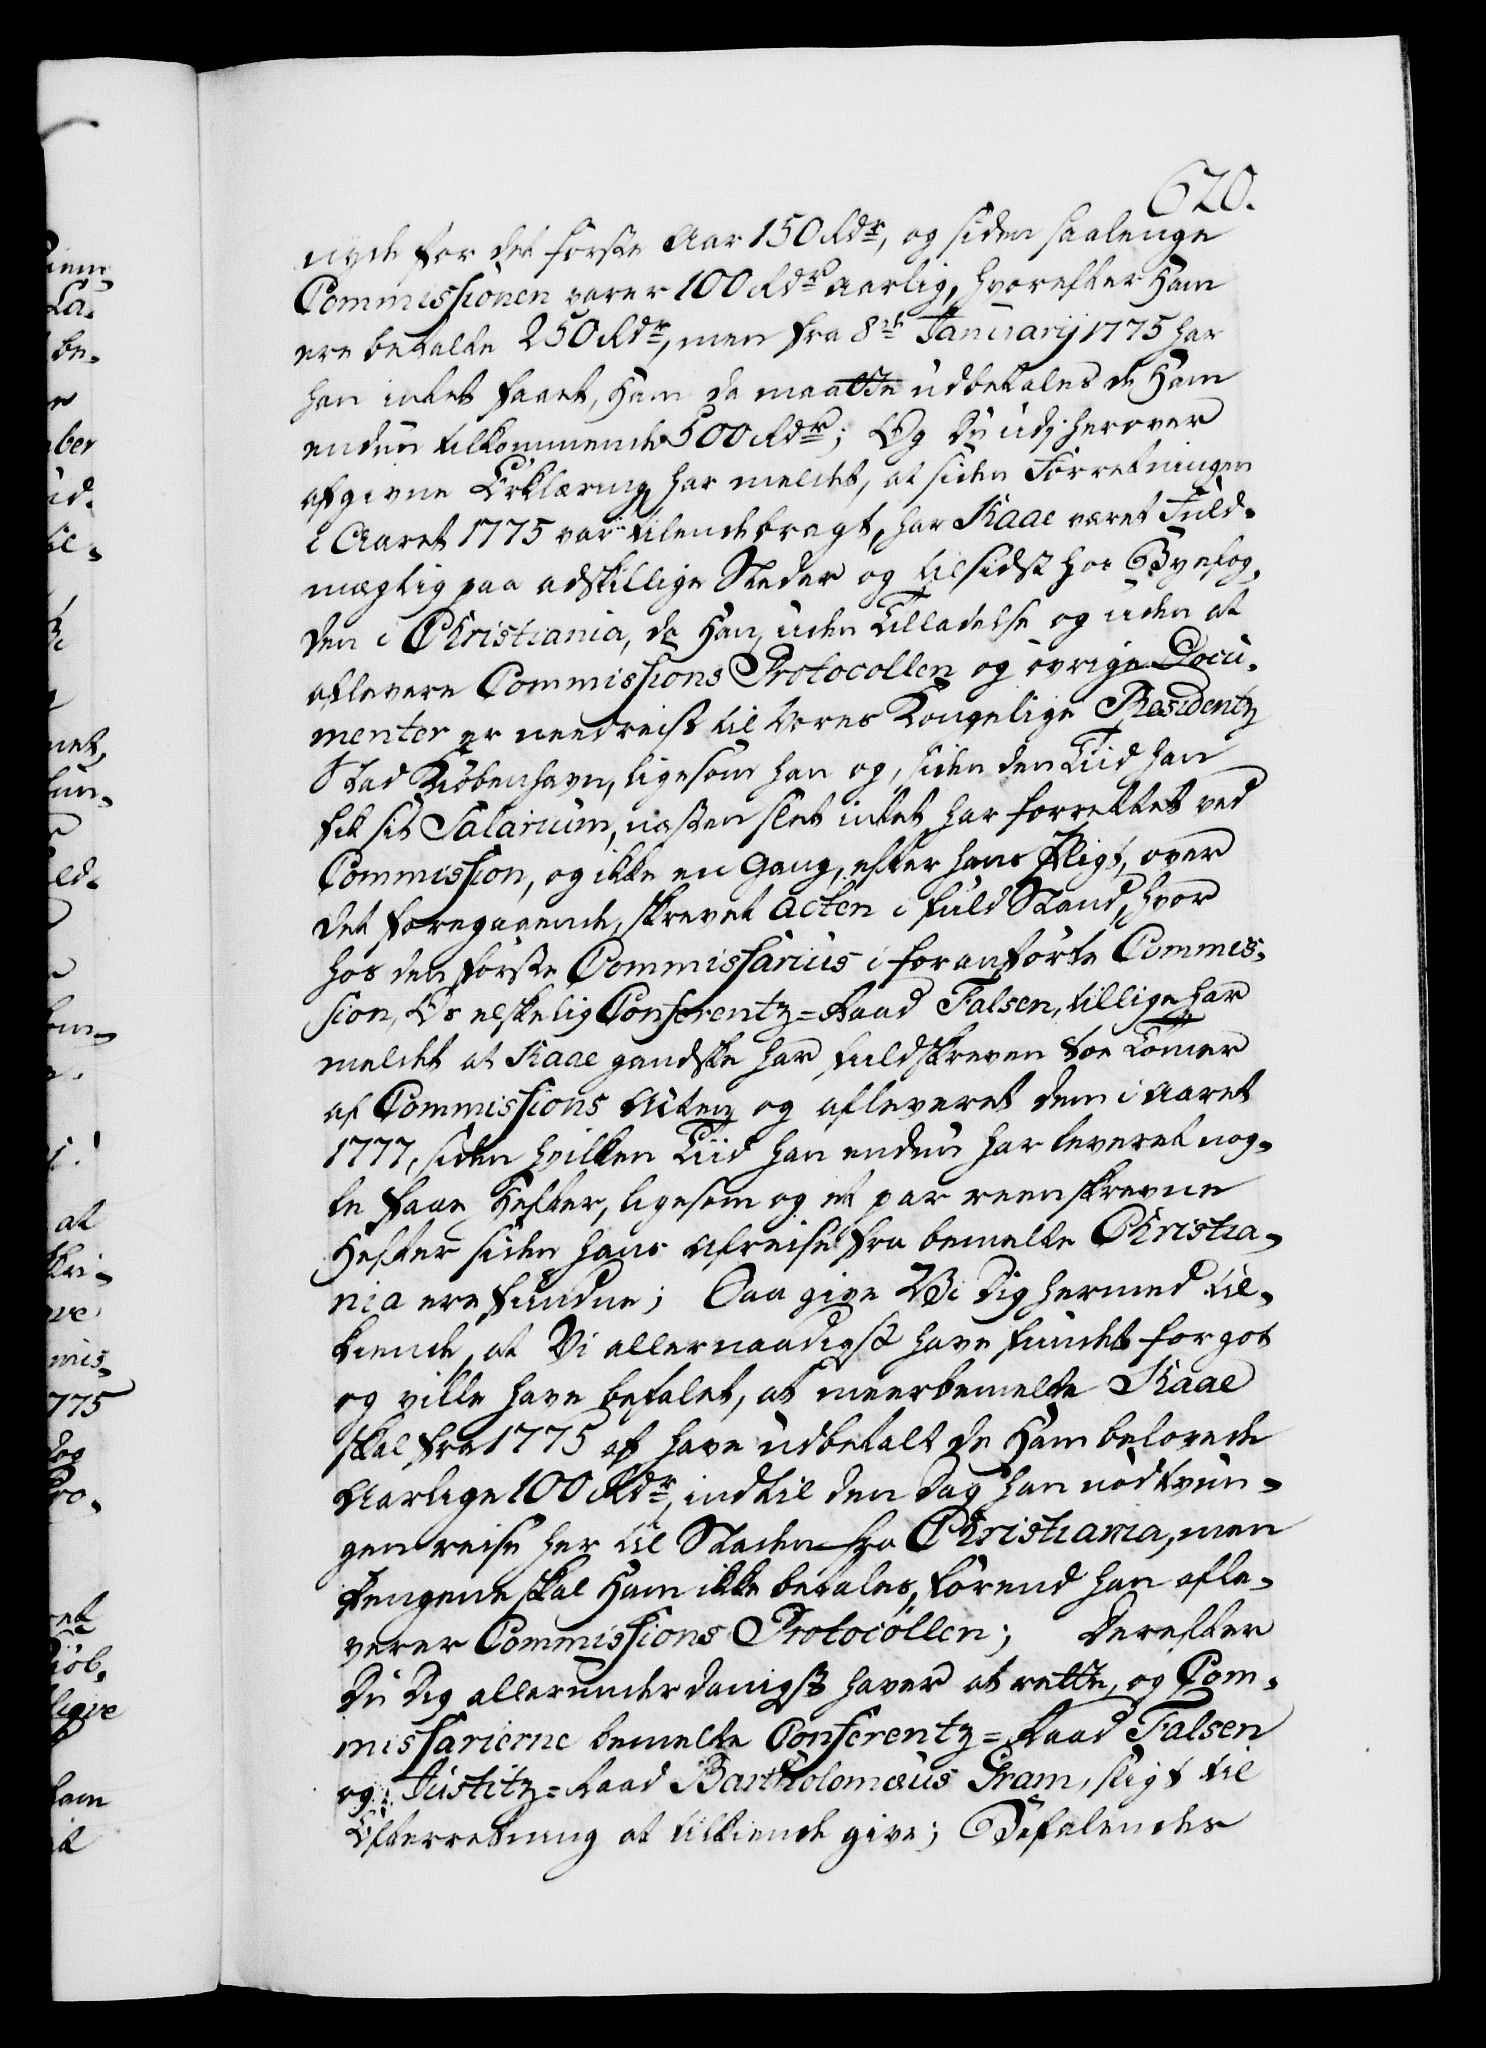 620.
nyde for det første Aar 150 Rdr, og siden saalenge
Commissionen varer 100 Rdr aarlig, hvorefter Ham
ere betalte 250 Rdr, men fra 8de Januarij 1775 har
han intet faaet, Ham da maatte udbetales de Ham
endnu tilkommende 500 Rdr; Og Du udj herover
afgivne Erklæring har meldet, at siden Forretningen
i Aaret 1775 var tilendebragt, har Kaae været Fuld-
mægtig paa adskillige Steder og tilsidst hos Byefog-
den i Christiania, da Han, uden Tilladelse og uden at
aflevere Commissions Protocollen og øvrige Docu-
menter er needreist til Vores Kongelige Residentz
Stad Kiøbenhavn, ligesom han og, siden den Tiid han
fik sit Salarium, næsten slet intet har forrettet ved
Commission, og ikke en Gang, efter hans Pligt, over
det foregaaende, skrevet Acten i fuld Stand, hvor
hos den første Commissarius i foranførte Commis-
sion, Os elskelig Conferentz=Raad Falsen, tillige har
meldet at Kaae gandske har fuldskreven toe Tomer
af Commissions Acten og afleveret dem i Aaret
1777, siden hvilken Tiid han endnu har leveret nog-
le faae Hefter, ligesom og et par reenskrevne
Hefter siden hans Afreise fra bemelte Christia-
nia ere fundne; Saa give Vi Dig hermed til-
kiende, at Vi allernaadigst have fundet for got
og ville have befalet, at meerbemelte Kaae
skal fra 1775 af have udbetalt de Ham belovede
Aarlige 100 Rdr, indtil den Dag han nødtvun-
gen reise her til Staden fra Christiania, men
Pengene skal Ham ikke betales, førend han afle-
verer Commissions Protocollen; Derefter
Du Dig allerunderdanigst haver at rette, og Com-
missarierne bemelte Conferentz=Raad Falsen
og Justitz=Raad Bartholomæus Gram, sligt til
Efterretning at tilkiende give; Befalendes